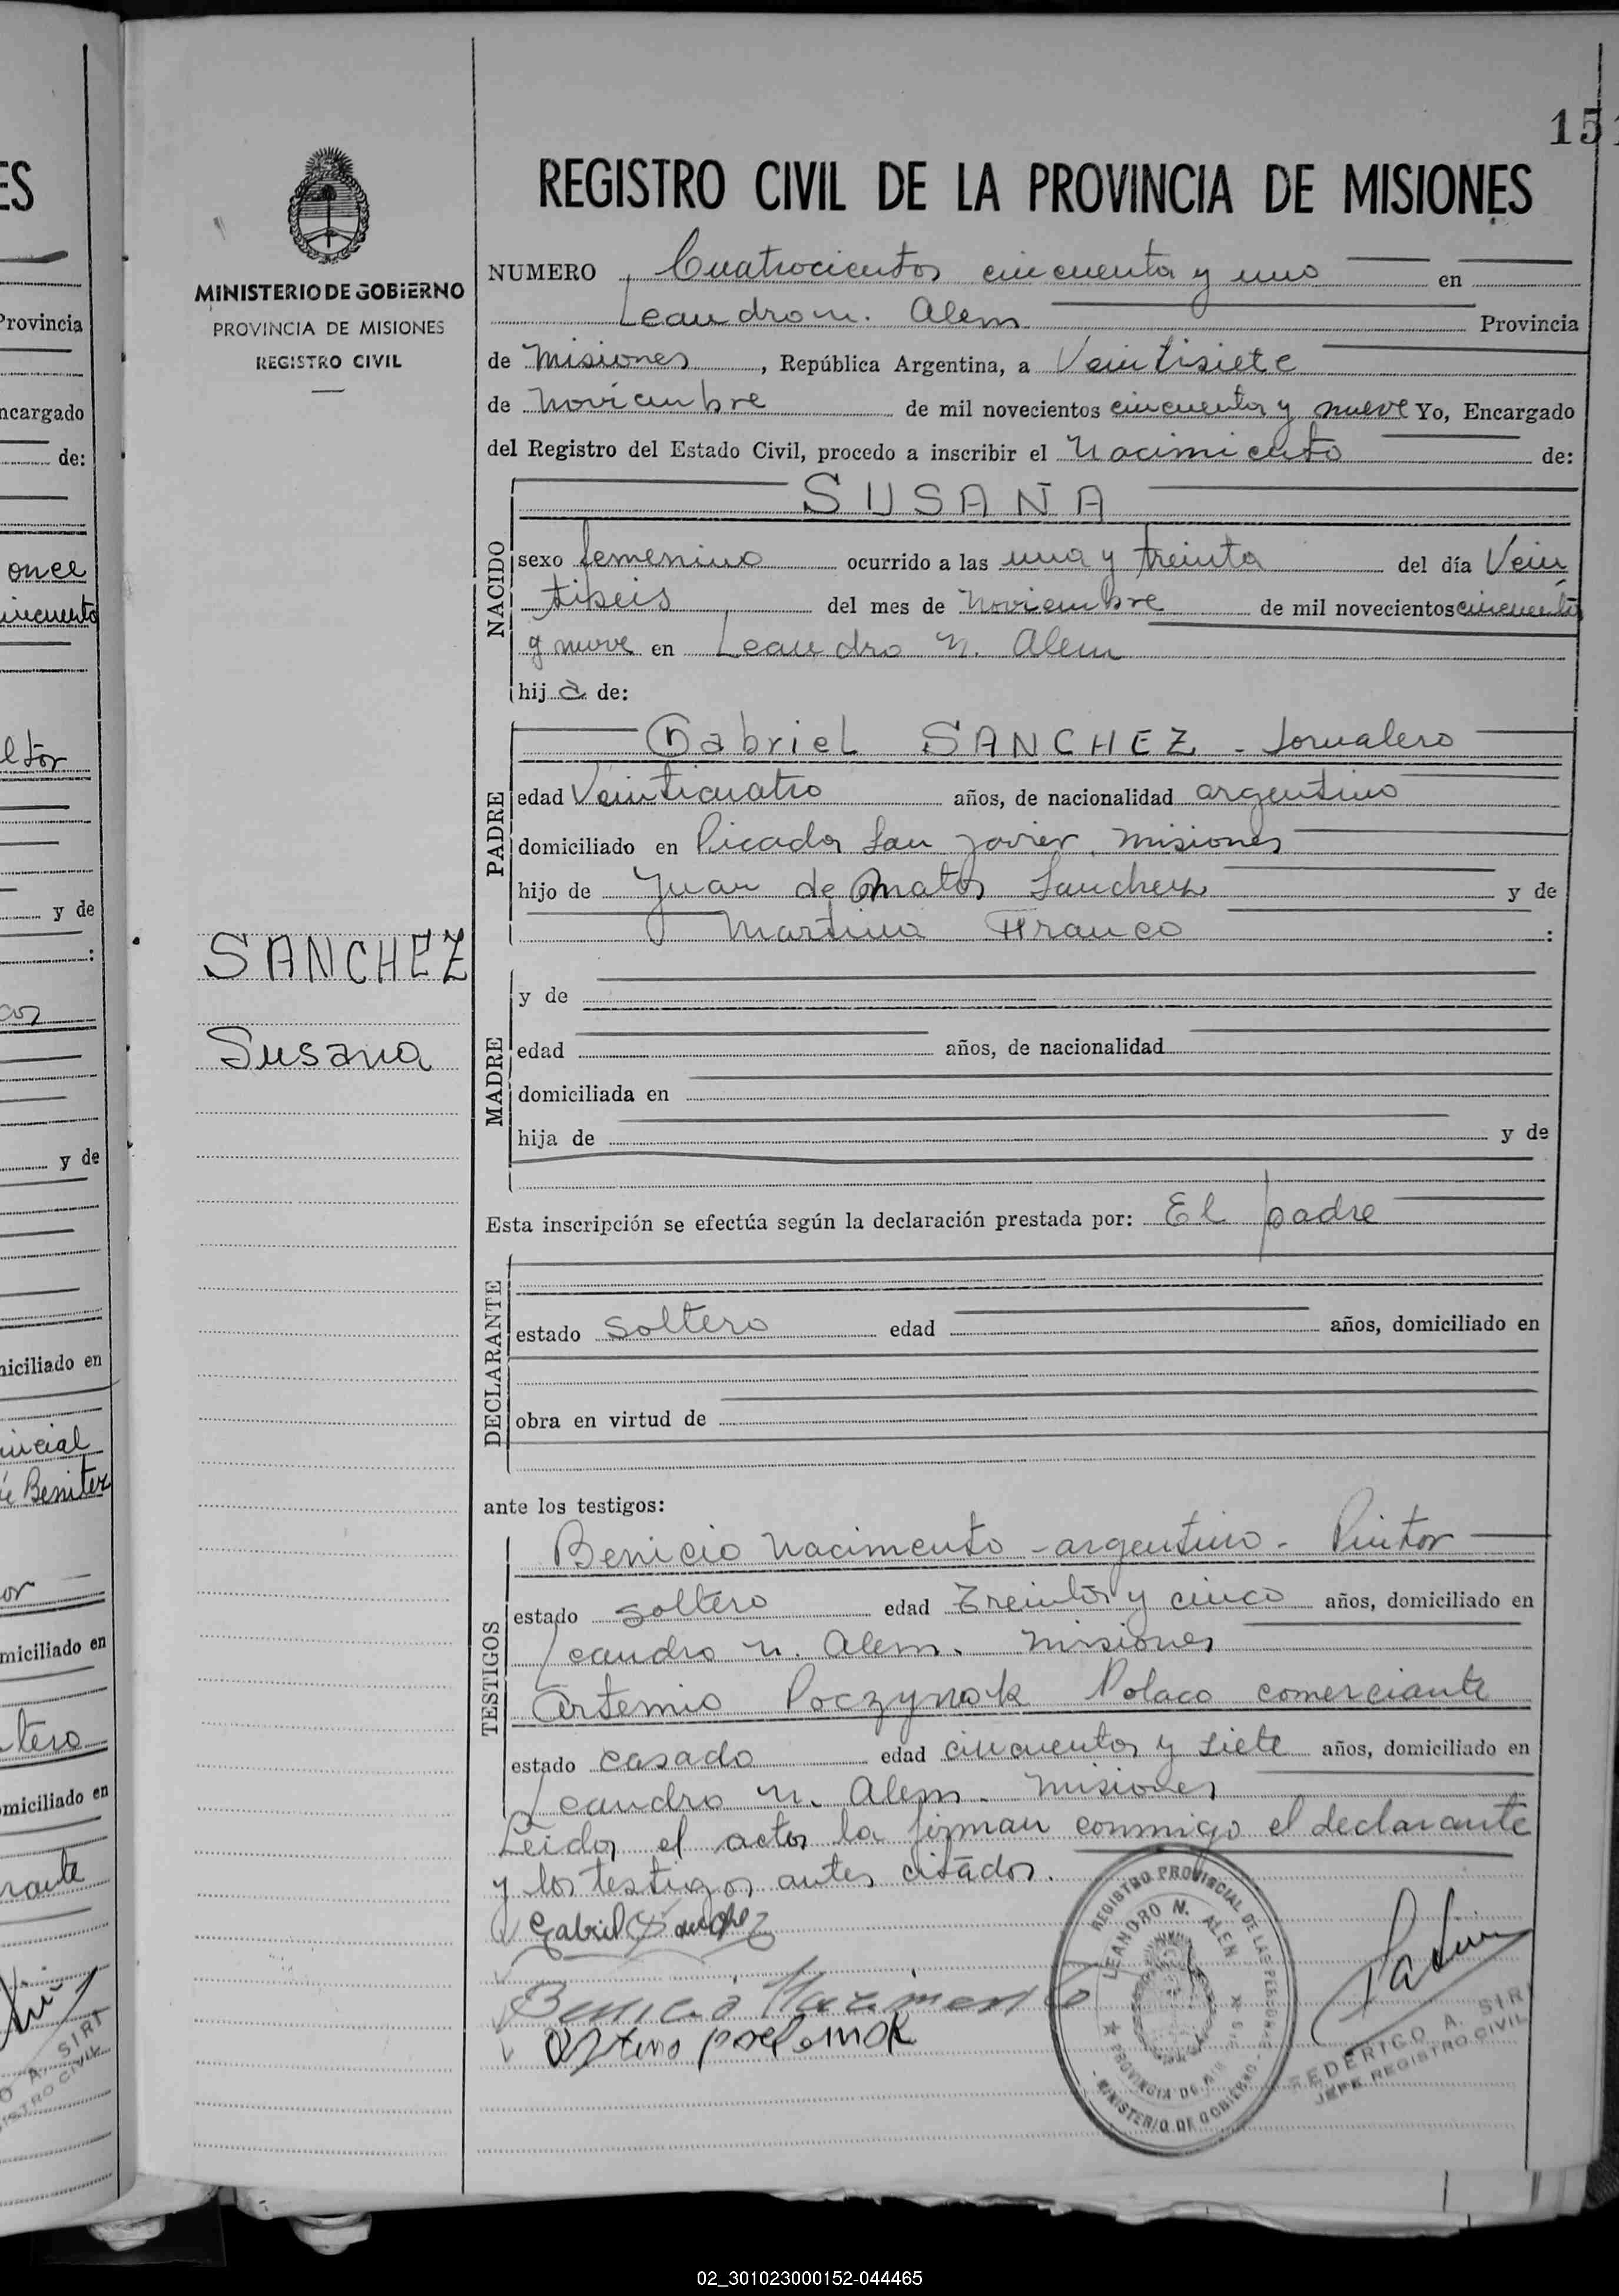 151
REGISTRO CIVIL DE LA PROVINCIA DE MISIONES
MINISTERIO DE GOBIERNO
PROVINCIA DE MISIONES
REGISTRO CIVIL
NUMERO Cuatrocientos cincuenta y uno en
Leandro N. Alem Provincia
de Misiones, República Argentina, a Veintisiete
de Noviembre de mil novecientos cincuenta y nueve Yo, Encargado
del Registro del Estado Civil, procedo a inscribir el Nacimiento de:
SUSANA
NACIDO
sexo femenino ocurrido a las una y treinta del día Vein
tiseis del mes de Noviembre de mil novecientos cincuenta
y nueve en Leandro N. Alem
hij a de:
PADRE
Gabriel SANCHEZ - Jornalero
edad Veinticuatro años, de nacionalidad argentino
domiciliado en Picada San Javier. Misiones
hijo de Juan de Matos Sanchez y de
Martina Franco :
SANCHEZ
Susana
MADRE
y de
edad años, de nacionalidad
domiciliada en
hija de y de
Esta inscripción se efectúa según la declaración prestada por: El padre
DECLARANTE
estado soltero edad años, domiciliado en
obra en virtud de
ante los testigos:
TESTIGOS
Benicio Nacimento - argentino - Pintor
estado soltero edad Treinta y cinco años, domiciliado en
Leandro N. Alem. Misiones
Artemio Poczynok Polaco comerciante
estado casado edad cincuenta y siete años, domiciliado en
Leandro N. Alem. Misiones
Leida el acta la firman conmigo el declarante
y los testigos antes citados.
Gabriel Sanchez
Benicio Nacimento
REGISTRO PROVINCIAL DE LAS PERSONAS
LEANDRO N. ALEN
PROVINCIA DE MISIONES
MINISTERIO DE GOBIERNO
FEDERICO A. SIR
JEFE REGISTRO CIVIL
ES
Provincia
ncargado
de:
once
cincuenta
ltor
y de
:
y de
niciliado en
incial
Benitez
or
miciliado en
ltero
omiciliado en
rante
O A. SIRT
ISTRO CIVIL
02_301023000152-044465